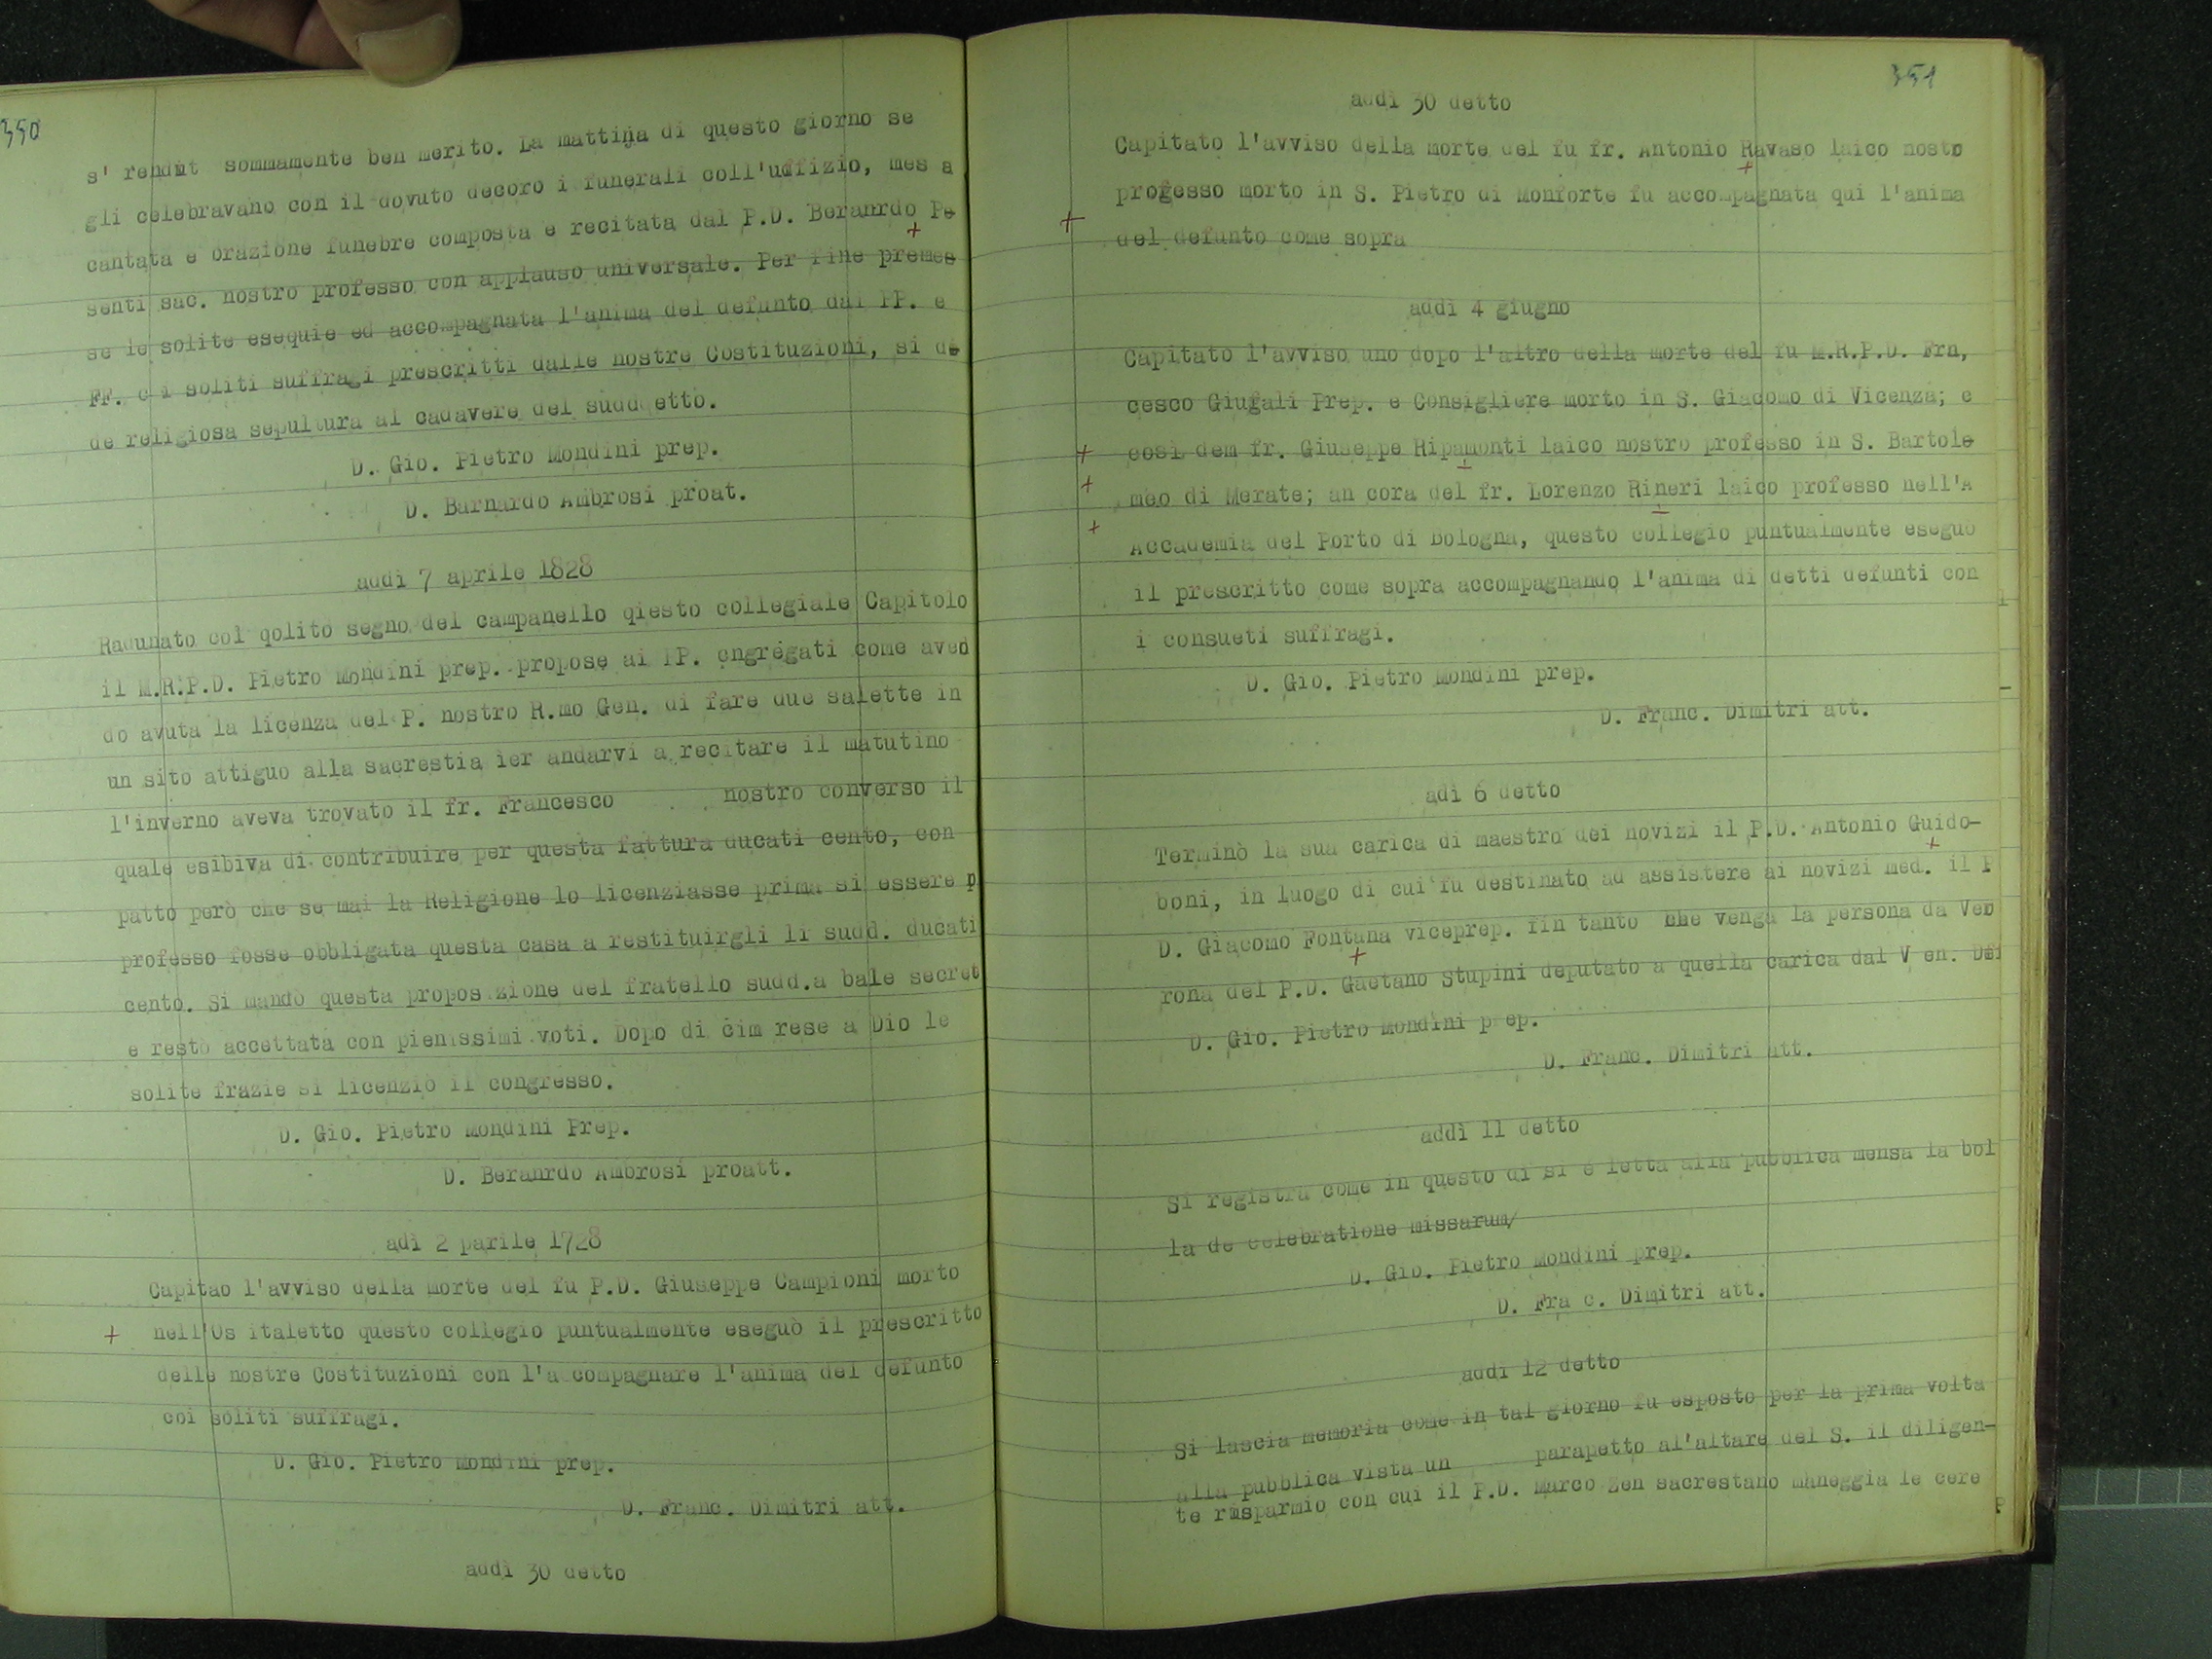 350
s' rendut sommamente ben merito. La mattina di questo giorno se
gli celebravano con il dovuto decoro i funerali coll'uffizio, mes a
cantata e orazione funebre composta e recitata dal P.D. Beranrdo Pe
senti sac. nostro professo con applauso universale. Per fine premes
se le solite esequie ed accompagnata l'anima del defunto dai PP. e
FF. c i soliti suffragi prescritti dalle nostre Costituzioni, si de
de religiosa sepultura al cadavere del sudd etto.
D. Gio. Pietro Mondini prep.
D. Barnardo Ambrosi proat.
addì 7 aprile 1828
Radunato col qolito segno del campanello qiesto collegiale Capitolo
il M.R.P.D. Pietro Mondini prep. propose ai PP. cngregati come aven
do avuta la licenza del P. nostro R.mo Gen. di fare due salette in
un sito attiguo alla sacrestia ier andarvi a recitare il matutino
l'inverno aveva trovato il fr. Francesco nostro converso il
quale esibiva di contribuire per questa fattura ducati cento, con
patto però che se mai la Religione lo licenziasse prima si essere p
professo fosse obbligata questa casa a restituirgli li sudd. ducati
cento. Si mandò questa propos zione del fratello sudd.a bale secret
e restò accettata con pienissimi voti. Dopo di cim rese a Dio le
solite frazie si licenziò il congresso.
D. Gio. Pietro Mondini Prep.
D. Beranrdo Ambrosi proatt.
adì 2 parile 1728
Capitao l'avviso della morte del fu P.D. Giuseppe Campioni morto
+ nell'Os italetto questo collegio puntualmente eseguò il prescritto
delle nostre Costituzioni con l'a compagnare l'anima del defunto
coi soliti suffragi.
D. Gio. Pietro Mondini prep.
D. Franc. Dimitri att.
addì 30 detto
351
addì 30 detto
Capitato l'avviso della morte del fu fr. Antonio Ravaso laico nostr
progesso morto in S. Pietro di Monforte fu accompagnata qui l'anima
+ del defunto come sopra
addì 4 giugno
Capitato l'avviso uno dopo l'altro della morte del fu M.R.P.D. Frn,
cesco Giugali Prep. e Consigliere morto in S. Giacomo di Vicenza; e
+ così dem fr. Giuseppe Ripamonti laico nostro professo in S. Bartole
+ meo di Merate; an cora del fr. Lorenzo Rineri laico professo nell'A
+ Accademia del Porto di Bologna, questo collegio puntualmente eseguo
il prescritto come sopra accompagnando l'anima di detti defunti con
i consueti suffragi.
D. Gio. Pietro Mondini prep.
D. Franc. Dimitri att.
adì 6 detto
Terminò la sua carica di maestro dei novizi il P.D. Antonio Guido-
boni, in luogo di cui fu destinato ad assistere ai novizi med. il P
D. Giacomo Fontana viceprep. fin tanto che venga la persona da Ver
rona del P.D. Gaetano Stupini deputato a quella carica dal V en. Def
D. Gio. Pietro Mondini p ep.
D. Franc. Dimitri att.
addì 11 detto
Si registra come in questo di si è letta alla pubblica mensa la bol
la de celebratione missarum/
D. Gio. Pietro Mondini prep.
D. Fra c. Dimitri att.
addì 12 detto
Si lascia memoria come in tal giorno fu esposto per la prima volta
alla pubblica vista un parapetto al'altare del S. il diligen-
te risparmio con cui il P.D. Marco Zen sacrestano maneggia le cere